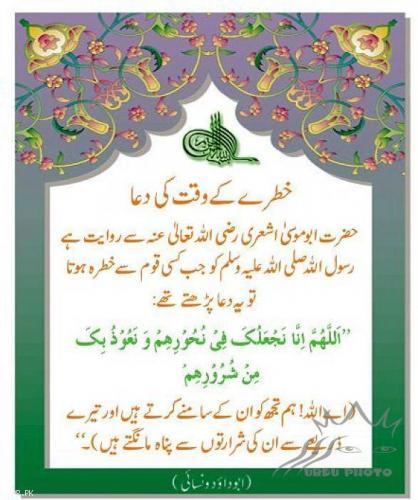 خطرے کے وقت کی دعا
حضرت ابوموسیٰ اشعری رضی اللہ تعالیٰ عنہ سے روایت ہے
رسول اللہ صلی اللہ علیہ وسلم کو جب کسی قوم سے خطرہ ہوتا
تو یہ دعا پڑھتے تھے:
”اَللّٰهُمَّ اِنَّا نَجْعَلُکَ فِیْ نُحُوْرِهِمْ وَ نَعُوْذُ بِکَ
مِنْ شُرُوْرِهِمْ
(اے اللہ! ہم تجھ کو ان کے سامنے کرتے ہیں اور تیرے
ذریعے سے ان کی شرارتوں سے پناہ مانگتے ہیں)۔“
(ابوداؤد و نسائی)
URDU PHOTO
.PK